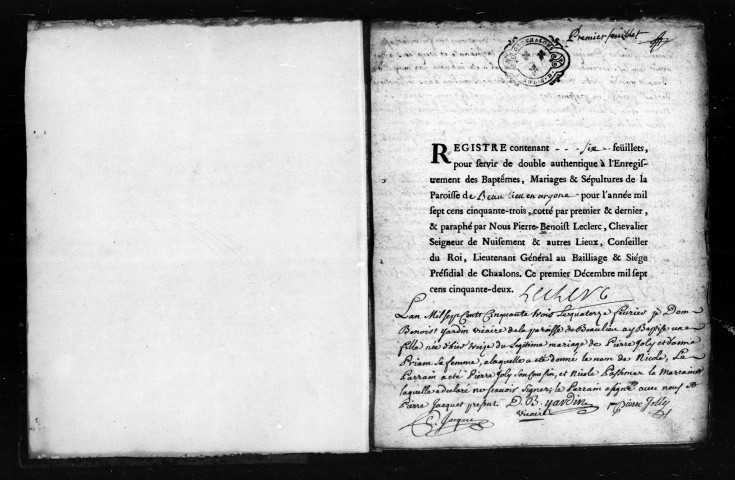 Premier feuillet
REGISTRE contenant - - - six - - feüillets,
pour servir de double authentique à l'Enregis-
trement des Baptêmes, Mariages & Sépultures de la
Paroisse de Beaulieu en argone pour l'année mil
sept cens cinquante-trois, cotté par premier & dernier,
& paraphé par Nous Pierre-Benoist Leclerc, Chevalier
Seigneur de Nuisement & autres Lieux, Conseiller
du Roi, Lieutenant Général au Bailliage & Siége
Présidial de Chaalons. Ce premier Décembre mil sept
cens cinquante-deux. Leclerc
Lan Mil sept Cents Cinquante trois le quatorze fevrier je Dom
Benoist yardin vicaire de la paroisse de Beaulieu ay Baptisé une
fille née d'hier du Legitime mariage de Pierre Joly et d'anne
sa femme, a laquelle a été donné le nom de Nicole, Le
Parrain a eté Pierre Joly son cousin, et Nicole la Maraine
laquelle a declaré ne sçavoir signer, le Parrain a signé avec nous et
Pierre Jacquet present. D. B. yardin Pierre Jolly
vicaire
P. Jacquet